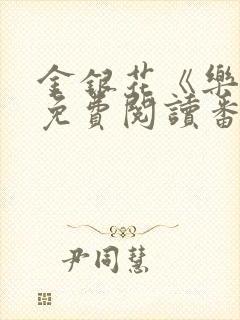 金銀花《樂
免費閱讀番
尹同慧